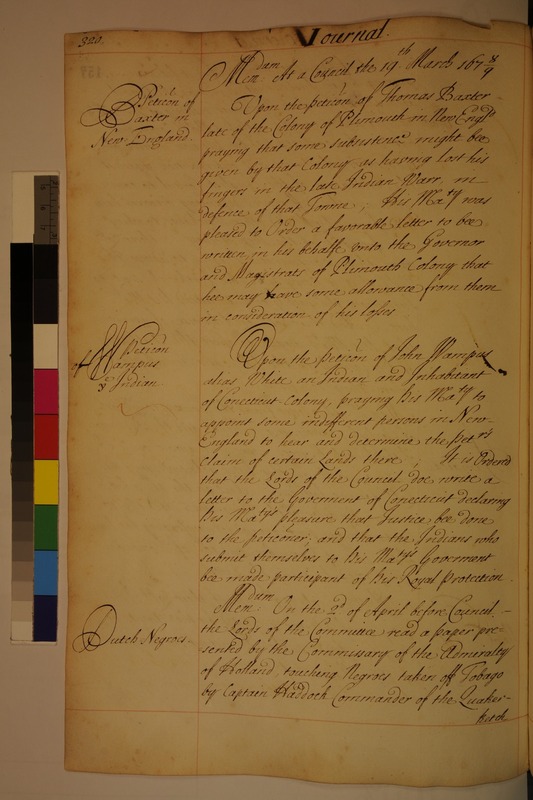 320.
Journal.
Mem.dum At a Council the 19th March 167 8/9
Petic̄on of
Baxter in
New England.
Upon the petic̄on of Thomas Baxter
late of the Colony of Plimouth in New Engld
praying that some subsistence might bee
given by that Colony as having lost his
fingers in the late Indian Warr, in
defence of that Towne; His Maty was
pleased to Order a favorable letter to bee
written in his behalfe unto the Governor
and Magistrats of Plimouth Colony that
hee may have some allowance from them
in consideration of his losses
Petic̄on
of Wampus
ye Indian
Upon the Petic̄on of John Wampus
alias White an Indian and Inhabitant
of Conecticut Colony, praying His Maty to
appoint some indifferent persons in New-
England to hear and determine the Petrs
claim of certain Lands there; It is Ordered
that the Lords of the Council doe write a
letter to the Goverment of Conecticut declaring
His Matys pleasure that Justice bee done
to the peticoner, and that the Indians who
submit themselves to His Matys Goverment
bee made participant of His Royal Protection.
Dutch Negros
Mem.dum On the 2d of April before Council
the Lords of the Committee read a paper pre-
sented by the Commissary of the Admiralty
of Holland, touching Negros taken off Tobago
by Captain Haddock Commander of the Quaker-
ketch